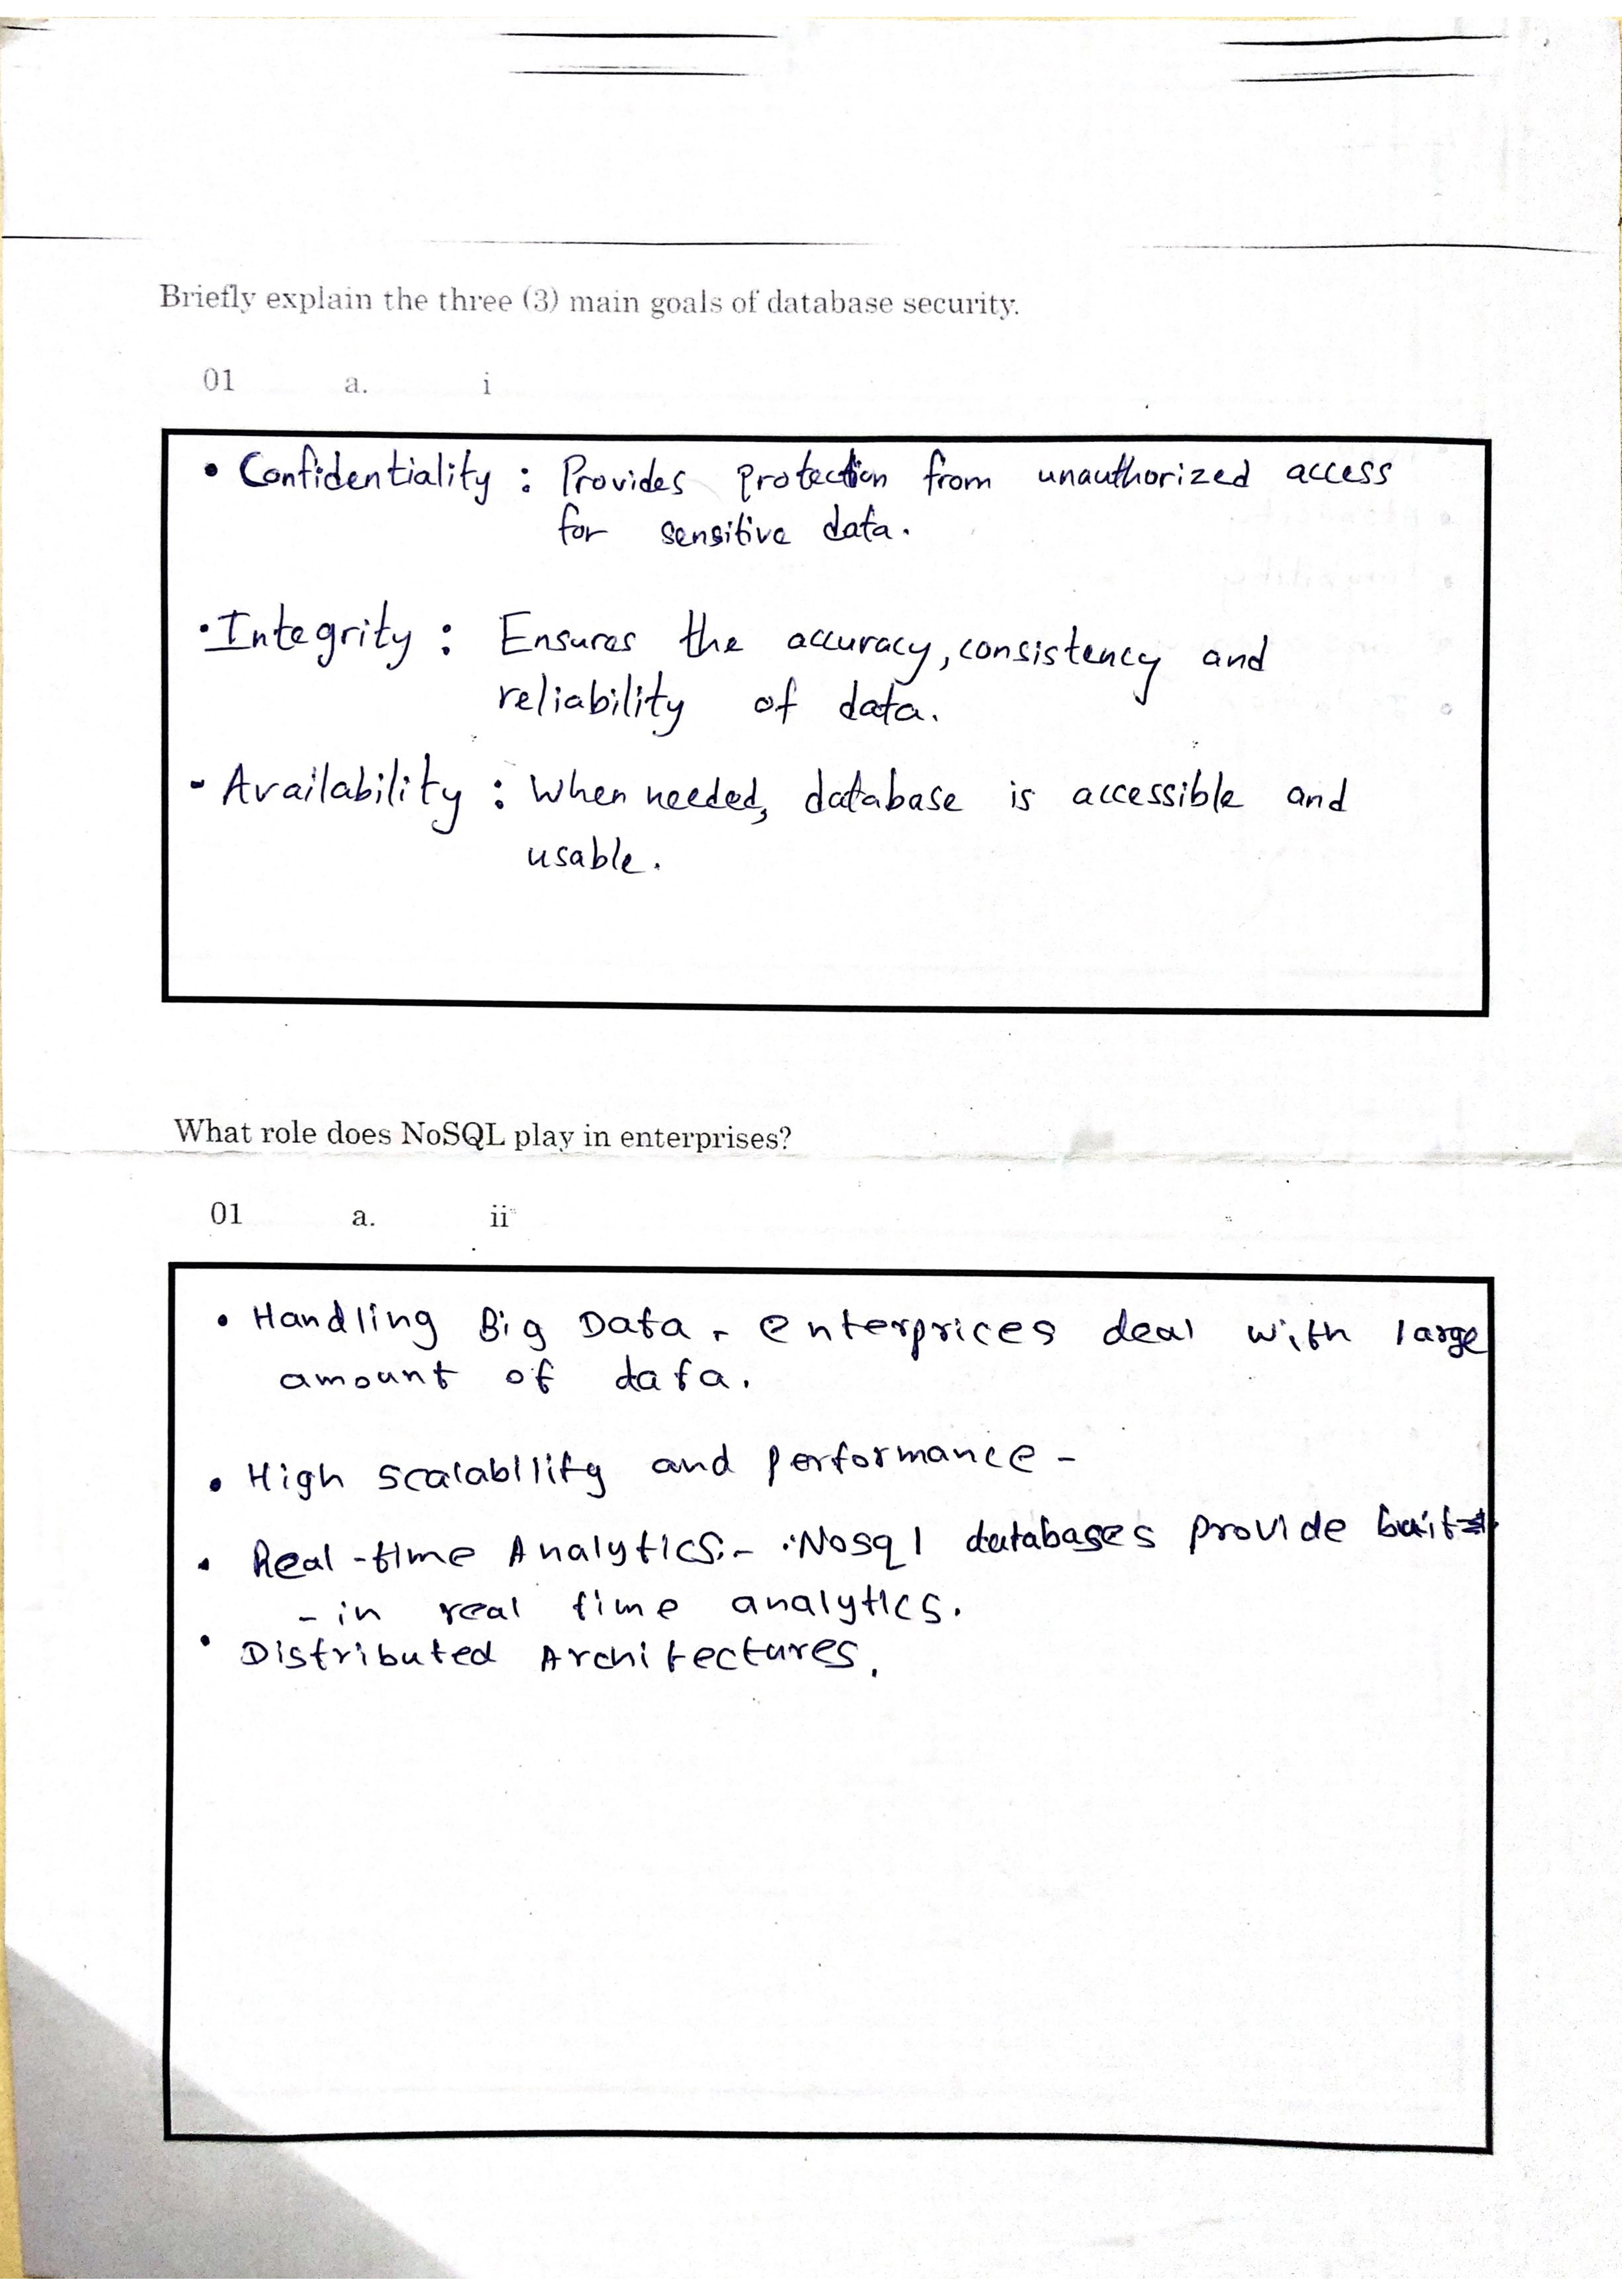 Briefly explain the three (3) main goals of database security.
01 a. i
• Confidentiality : Provides protection from unauthorized access
for sensitive data.
• Integrity : Ensures the accuracy, consistency and
reliability of data.
- Availability : When needed, database is accessible and
usable.
What role does NoSQL play in enterprises?
01 a. ii
• Handling Big Data - enterprices deal with large
amount of data.
• High scalability and performance -
• Real-time Analytics:- Nosql databases provide
- in real time analytics.
• Distributed Architectures.